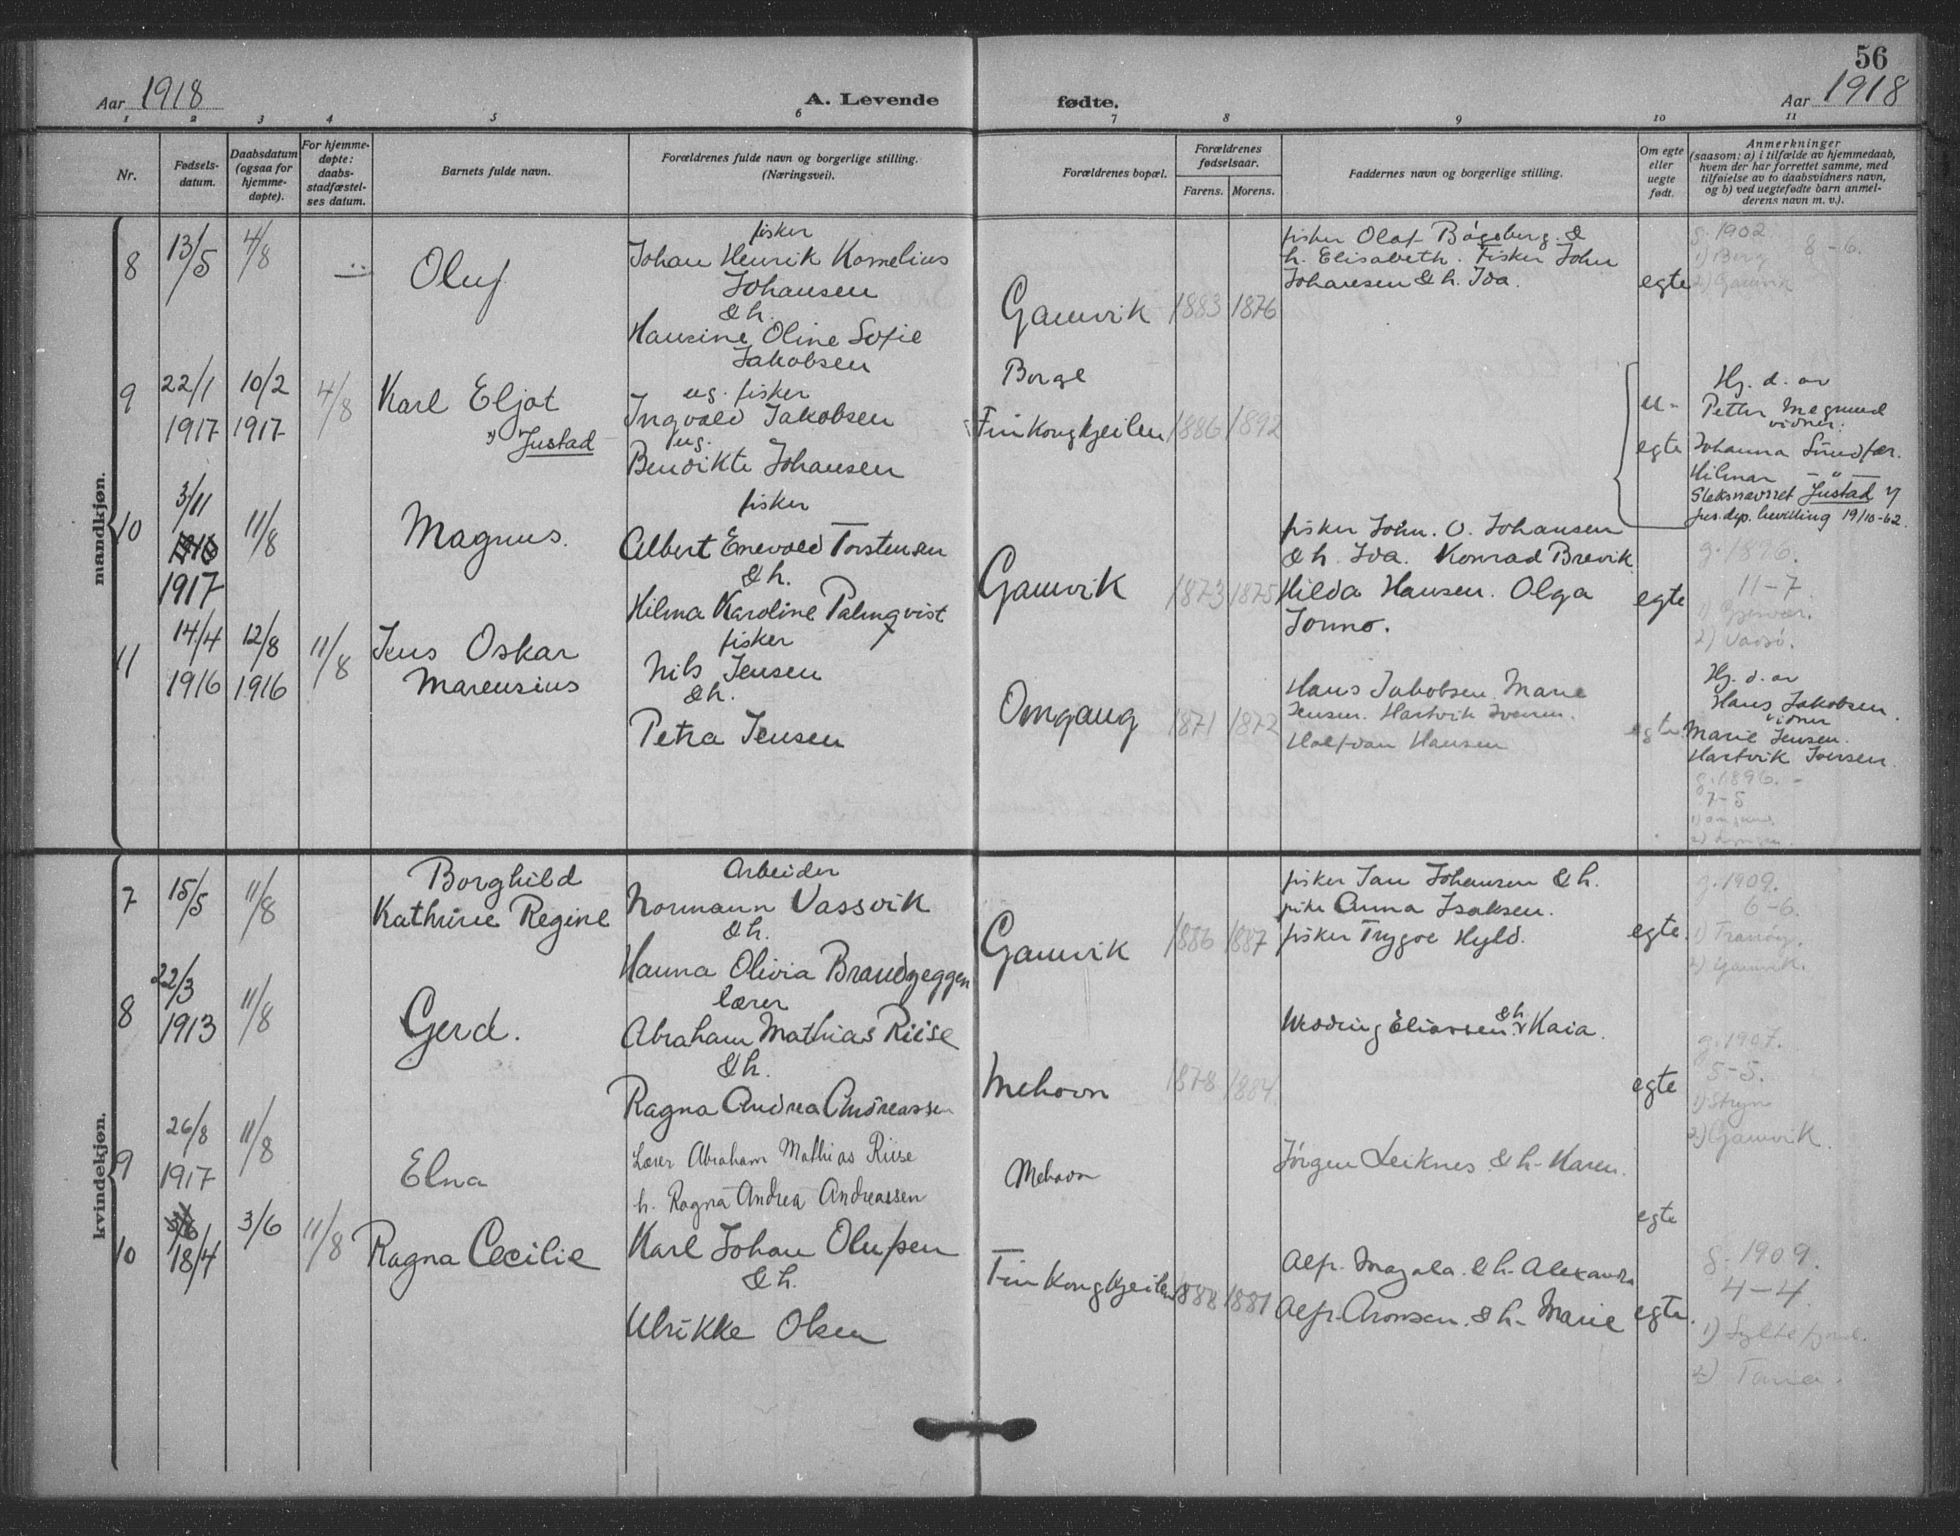 56
Aar 1918
A. Levende fødte.
Aar 1918
1 2 3 4 5 6 7 8 9 10 11
Nr.
Fødsels-
datum.
Daabsdatum
(ogsaa for
hjemme-
døpte).
For hjemme-
døpte:
daabs-
stadfæstel-
ses datum.
Barnets fulde navn.
Forældrenes fulde navn og borgerlige stilling.
(Næringsvei).
Forældrenes bopæl.
Forældrenes
fødselsaar.
Farens. Morens.
Faddernes navn og borgerlige stilling.
Om egte
eller
uegte
født.
Anmerkninger
(saasom: a) i tilfælde av hjemmedaab,
hvem der har forrettet samme, med
tilføielse av to daabsvidners navn,
og b) ved uegtefødte barn anmel-
derens navn m. v.).
mandkjøn.
8
13/5
4/8
Oluf
fisker
Johan Henrik Kornelius
Johansen
& h.
Hansine Oline Sofie
Jakobsen
Gamvik
1883 1876
fisker Olaf Bøgeberg &
h. Elisabeth. Fisker John
Johansen & h. Ida.
egte
g. 1902
8-6.
1) Borge
2) Gamvik
9
22/1
1917
10/2
1917
4/8
Karl Eljot
" Justad
ug. fisker
Ingvald Jakobsen
ug.
Bendikte Johansen
Borge
Finkongkjeilen
1886 1892
u-
egte
Hj. d. av
Petter Magnud
vidner:
Johanna Sundfær.
Hilmar — " —
Slektsnavnet Justad
Jus. dep. bevilling 19/10-62.
10
3/11
1917
11/8
Magnus.
fisker
Albert Enevold Torstensen
& h.
Hilma Karoline Palmqvist
Gamvik
1873 1875
fisker John. O. Johansen
& h. Ida. Konrad Brevik
Hilda Hansen. Olga
Jonno.
egte
g. 1896.
11-7.
1) Gjesvær.
2) Vadsø.
11
14/4
1916
12/8
1916
11/8
Jens Oskar
Marensius
fisker
Nils Jensen
& h.
Petra Jensen
Omgang
1871 1872
Hans Jakobsen. Marie
Jensen. Hartvik Iversen.
Halfdan Hansen
egte
Hj. d. av
Hans Jakobsen.
vidner
Marie Jensen.
Hartvik Iversen.
g. 1896. -
7-5
kvindekjøn.
7
15/5
11/8
Borghild
Kathrine Regine
Arbeider
Normann Vassvik
& h.
Hanna Olivia Brandzeggen
Gamvik
1886 1887
fisker Jan Johansen & h.
pike Anna Isaksen.
fisker Trygve Hyld.
egte.
g. 1909.
6-6.
1) Tranøy.
2) Gamvik.
8
22/3
1913
11/8
Gerd.
lærer
Abraham Mathias Riise
& h.
Ragna Andrea Andreassen
Mehavn
1878 1884.
Wedding Eliassen & h. Kaia.
egte
g. 1907.
5-5.
1) Stryn
2) Gamvik.
9
26/8
1917
11/8
Elna
Lærer Abraham Mathias Riise
h. Ragna Andrea Andreassen
Mehavn
Jørgen Leiknes & h- Karen.
egte
10
18/4
3/6
11/8
Ragna Cecilie
Karl Johan Olufsen
& h.
Ulrikke Olsen
Finkongkjeilen
1888 1881
Alfr. Magala. & h- Alexandra
Alfr. Aronsen. & h- Marie
egte.
g. 1909.
4-4.
1) Syltefjord.
2) Tana.